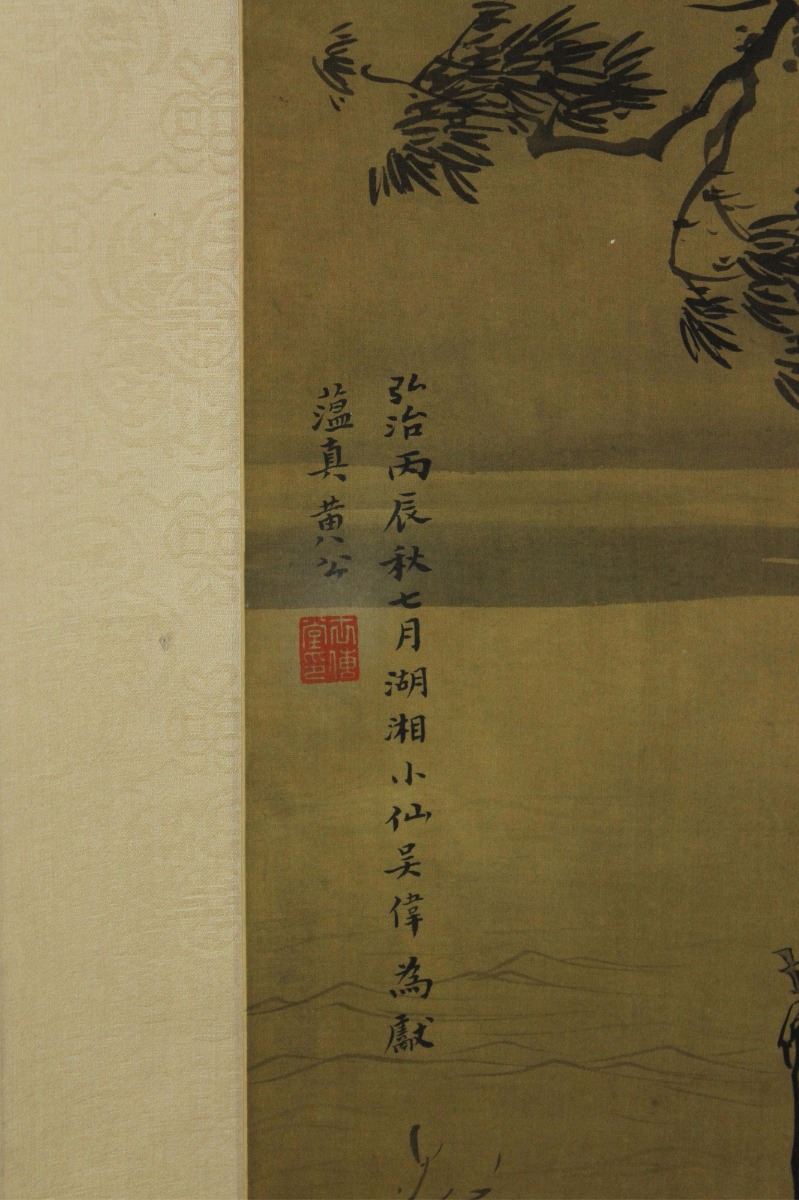 弘治丙辰秋七月湖湘小仙吴偉為獻
蕰真黄公